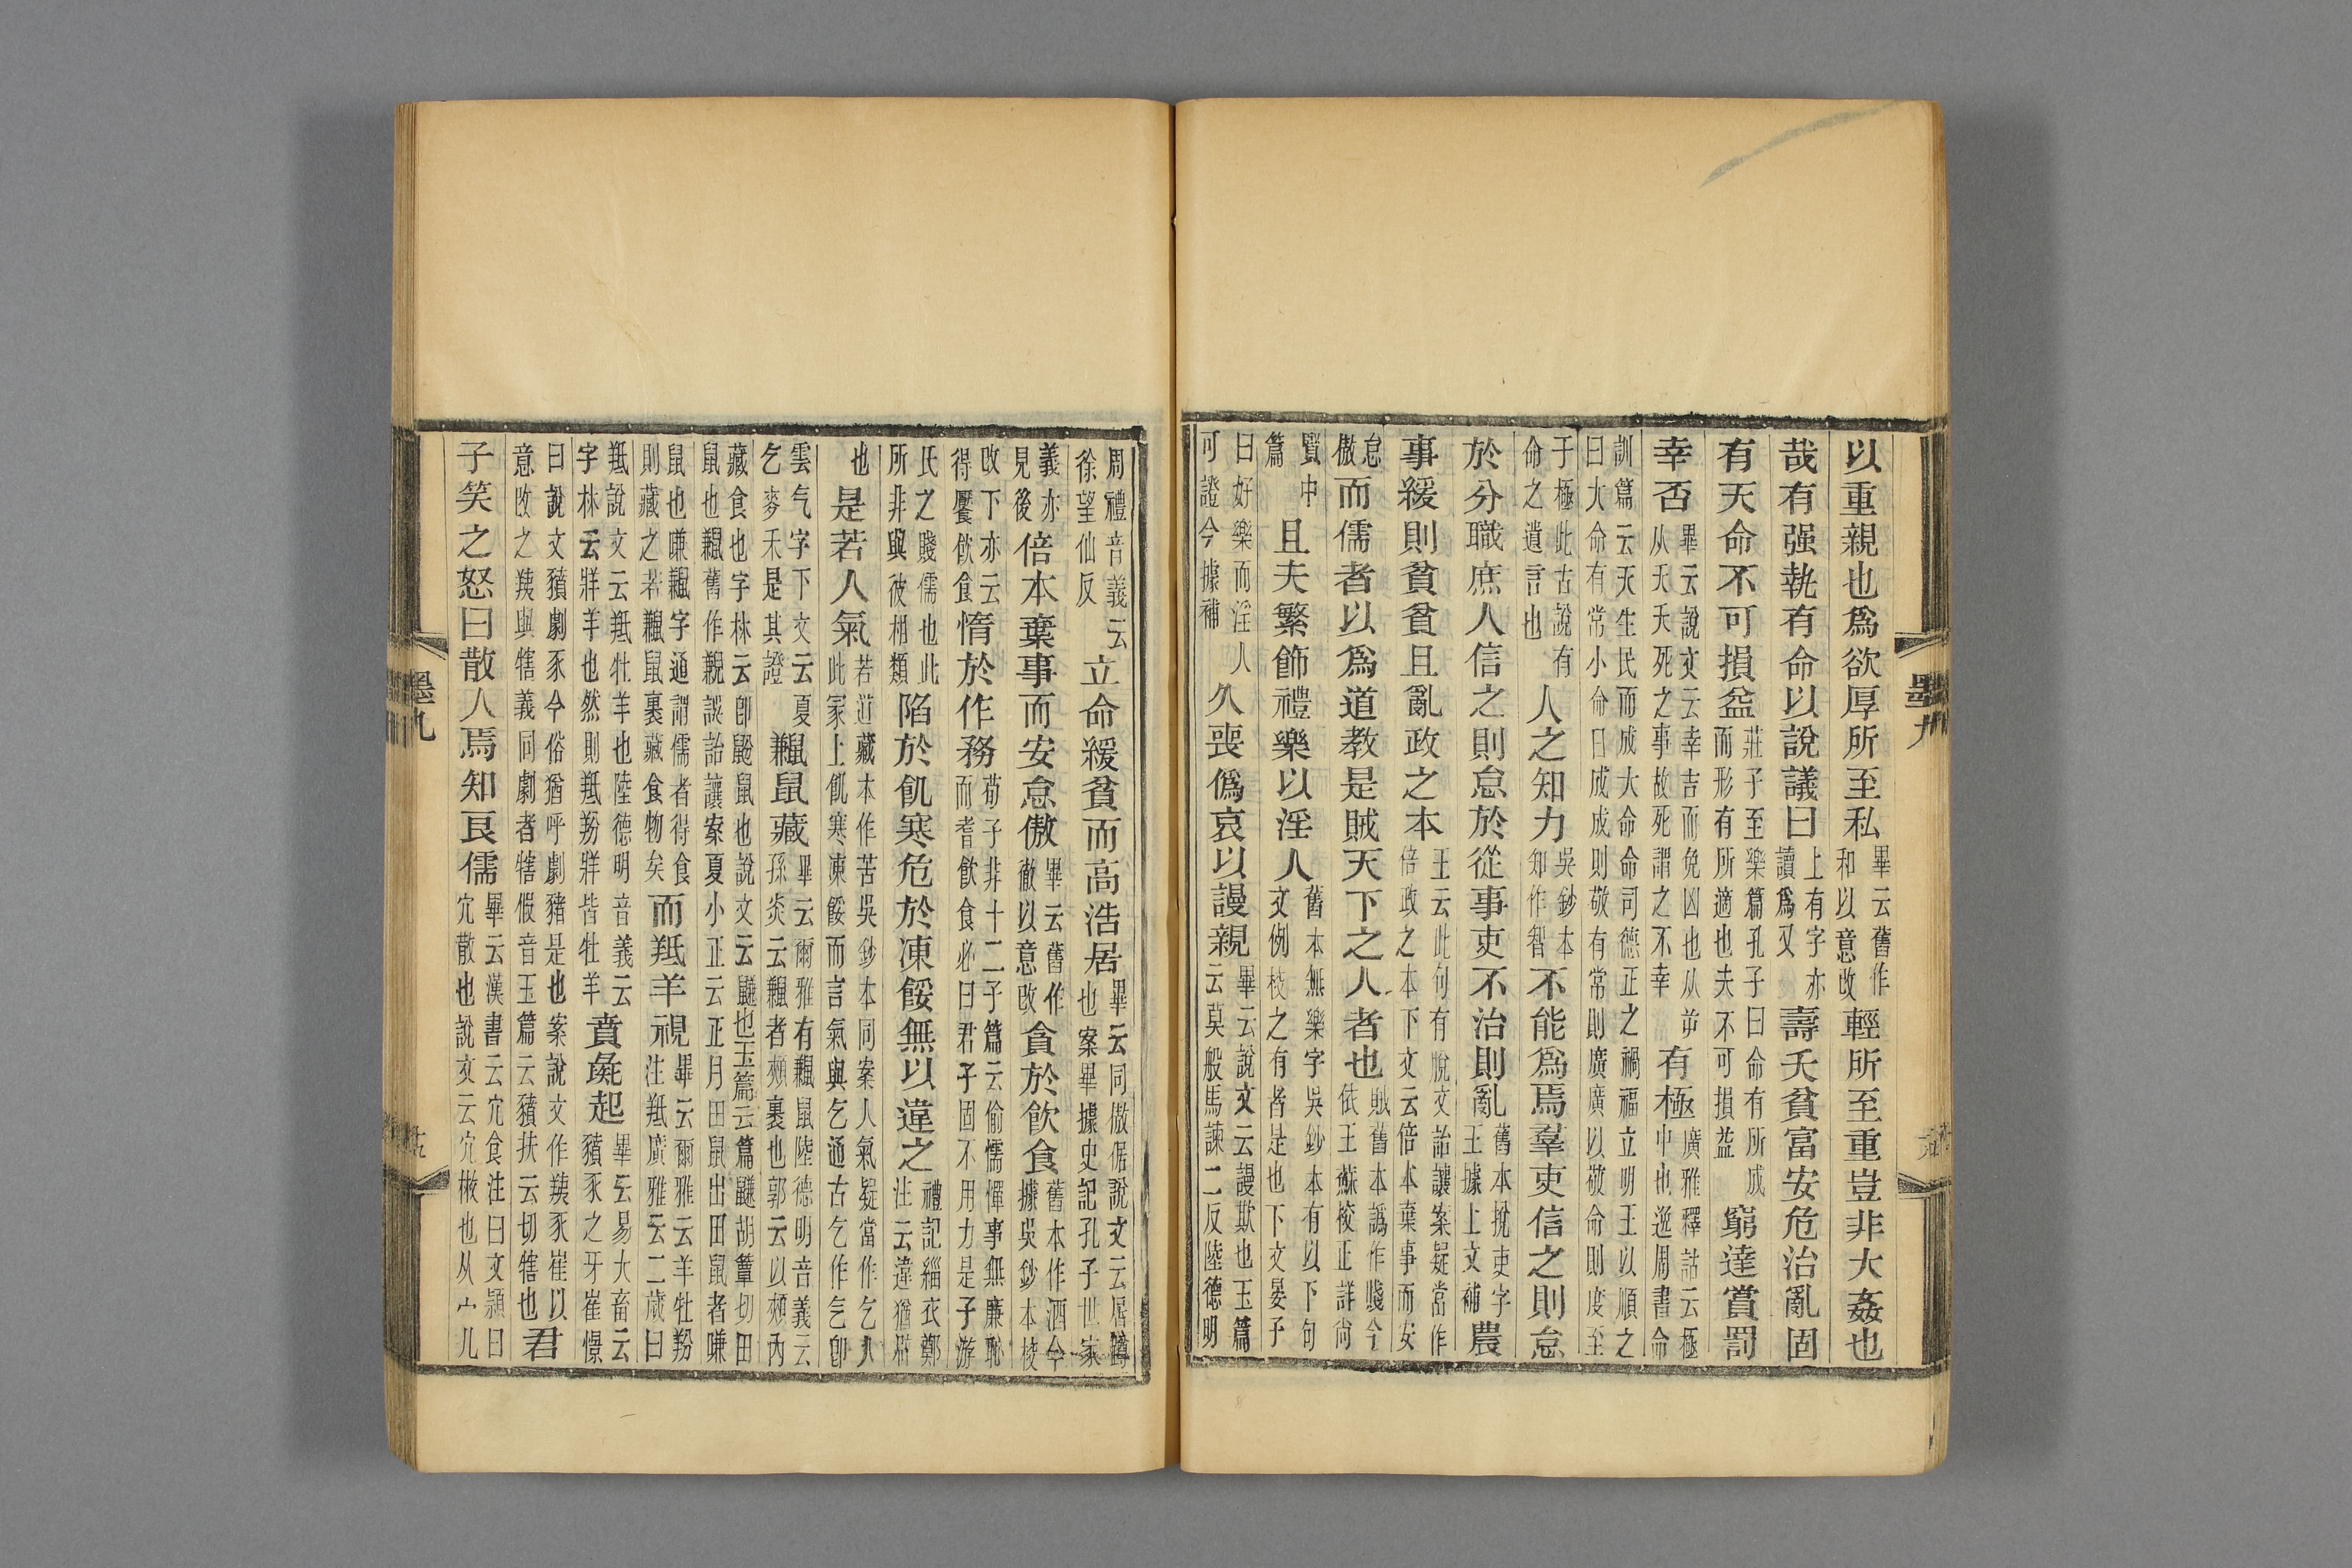 以重親也爲欲厚所至私畢云舊作和以意改輕所至重豈非大姦也
哉有强執有命以說議曰上有字亦讀爲又壽夭貧富安危治亂固
有天命不可損益莊子至樂篇孔子曰命有所成而形有所適也夫不可損益窮達賞罰
幸否畢云說文云幸吉而免凶也从屰从夭夭死之事故死謂之不幸有極廣雅釋詁云極中也逸周書命
訓篇云天生民而成大命命司德正之禍福立明王以順之曰大命有常小命日成成則敬有常則廣廣以敬命則度至
于極此古說有命之遺言也人之知力吳鈔本知作智不能爲焉羣吏信之則怠
於分職庶人信之則怠於從事吏不治則亂舊本挩吏字王據上文補農
事緩則貧貧且亂政之本王云此句有脫文詒讓案疑當作倍政之本下文云倍本棄事而安
怠傲而儒者以爲道教是賊天下之人者也賊舊本譌作賤今依王蘇校正詳尚
賢中篇且夫繁飾禮樂以淫人舊本無樂字吳鈔本有以下句文例校之有者是也下文晏子
曰好樂而淫人可證今據補久喪僞哀以謾親畢云說文云謾欺也玉篇云莫般馬諫二反陸德明
墨九
周禮音義云徐望仙反立命緩貧而高浩居畢云同傲倨說文云居蹲也案畢據史記孔子世家
義亦見後倍本棄事而安怠傲畢云舊作徹以意改貪於飮食舊本作酒今據吳鈔本校
改下亦云得饜飲食惰於作務荀子非十二子篇云偷懦憚事無廉恥而耆飲食必曰君子固不用力是子游
氏之賤儒也此所非與彼相類陷於飢寒危於凍餒無以違之禮記緇衣鄭注云違猶辟
也是若人氣若道藏本作苦吳鈔本同案人氣疑當作乞人此家上飢寒凍餒而言氣與乞通古乞作气卽
雲气字下文云夏乞麥禾是其證鼸鼠藏畢云爾雅有鼸鼠陸德明音義云孫炎云鼸者頰裏也郭云以頰內
藏食也字林云卽鼢鼠也說文云也玉篇云鼸胡簟切田鼠也鼸舊作誤詒讓案夏小正云正月田鼠出田鼠者嗛
鼠也嗛鼸字通謂儒者得食則藏之若鼸鼠裏藏食物矣而羝羊視畢云爾雅云羊牡羒注羝廣雅云二歲曰
羝說文云羝牡羊也陸德明音義云字林云牂羊也然則羝羒牂皆牡羊賁彘起畢云易大畜云豶豕之牙崔憬
曰說文豶劇豕今俗猶呼劇豬是也案說文作羠豕崔以意改之羠與犗義同劇者犗假音玉篇云豶扶云切犗也君
子笑之怒曰散人焉知良儒畢云漢書云宂食注曰文穎曰宂散也說文云宂㪔也从宀儿
墨九